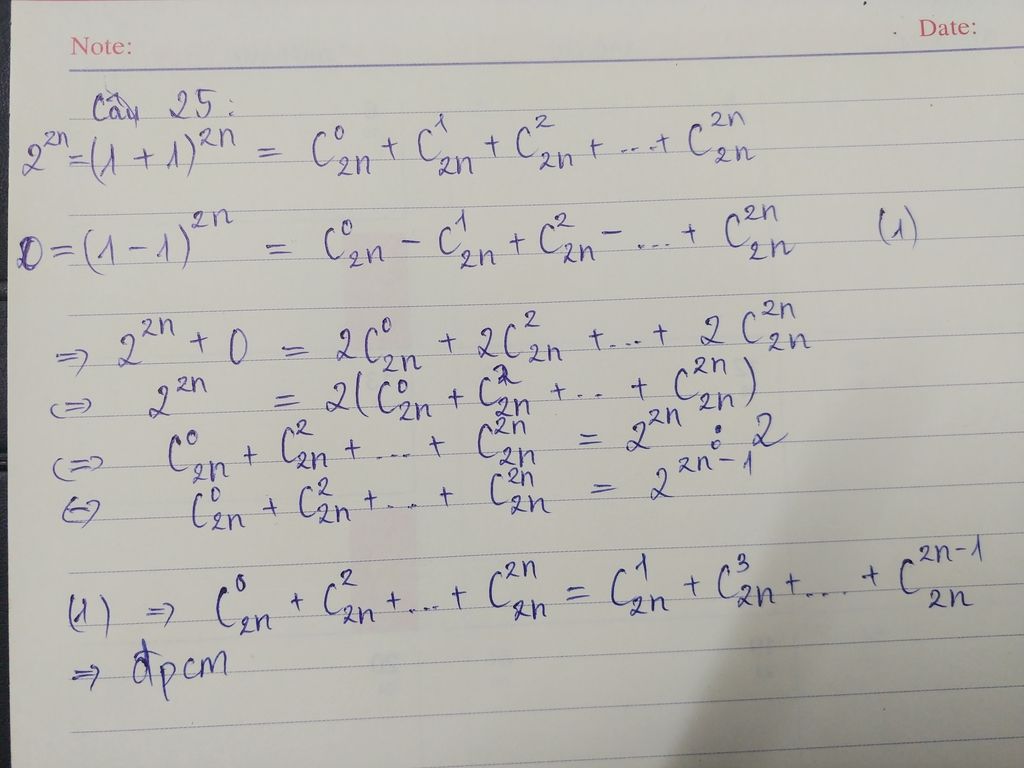 Note:
Date:
Câu 25:
2^{2n} = (1 + 1)^{2n} = C_{2n}^{0} + C_{2n}^{1} + C_{2n}^{2} + ... + C_{2n}^{2n}
0 = (1 - 1)^{2n} = C_{2n}^{0} - C_{2n}^{1} + C_{2n}^{2} - ... + C_{2n}^{2n} (1)
⇒ 2^{2n} + 0 = 2C_{2n}^{0} + 2C_{2n}^{2} + ... + 2C_{2n}^{2n}
⇔ 2^{2n} = 2(C_{2n}^{0} + C_{2n}^{2} + ... + C_{2n}^{2n})
⇔ C_{2n}^{0} + C_{2n}^{2} + ... + C_{2n}^{2n} = 2^{2n} : 2
⇔ C_{2n}^{0} + C_{2n}^{2} + ... + C_{2n}^{2n} = 2^{2n-1}
(1) ⇒ C_{2n}^{0} + C_{2n}^{2} + ... + C_{2n}^{2n} = C_{2n}^{1} + C_{2n}^{3} + ... + C_{2n}^{2n-1}
⇒ đpcm